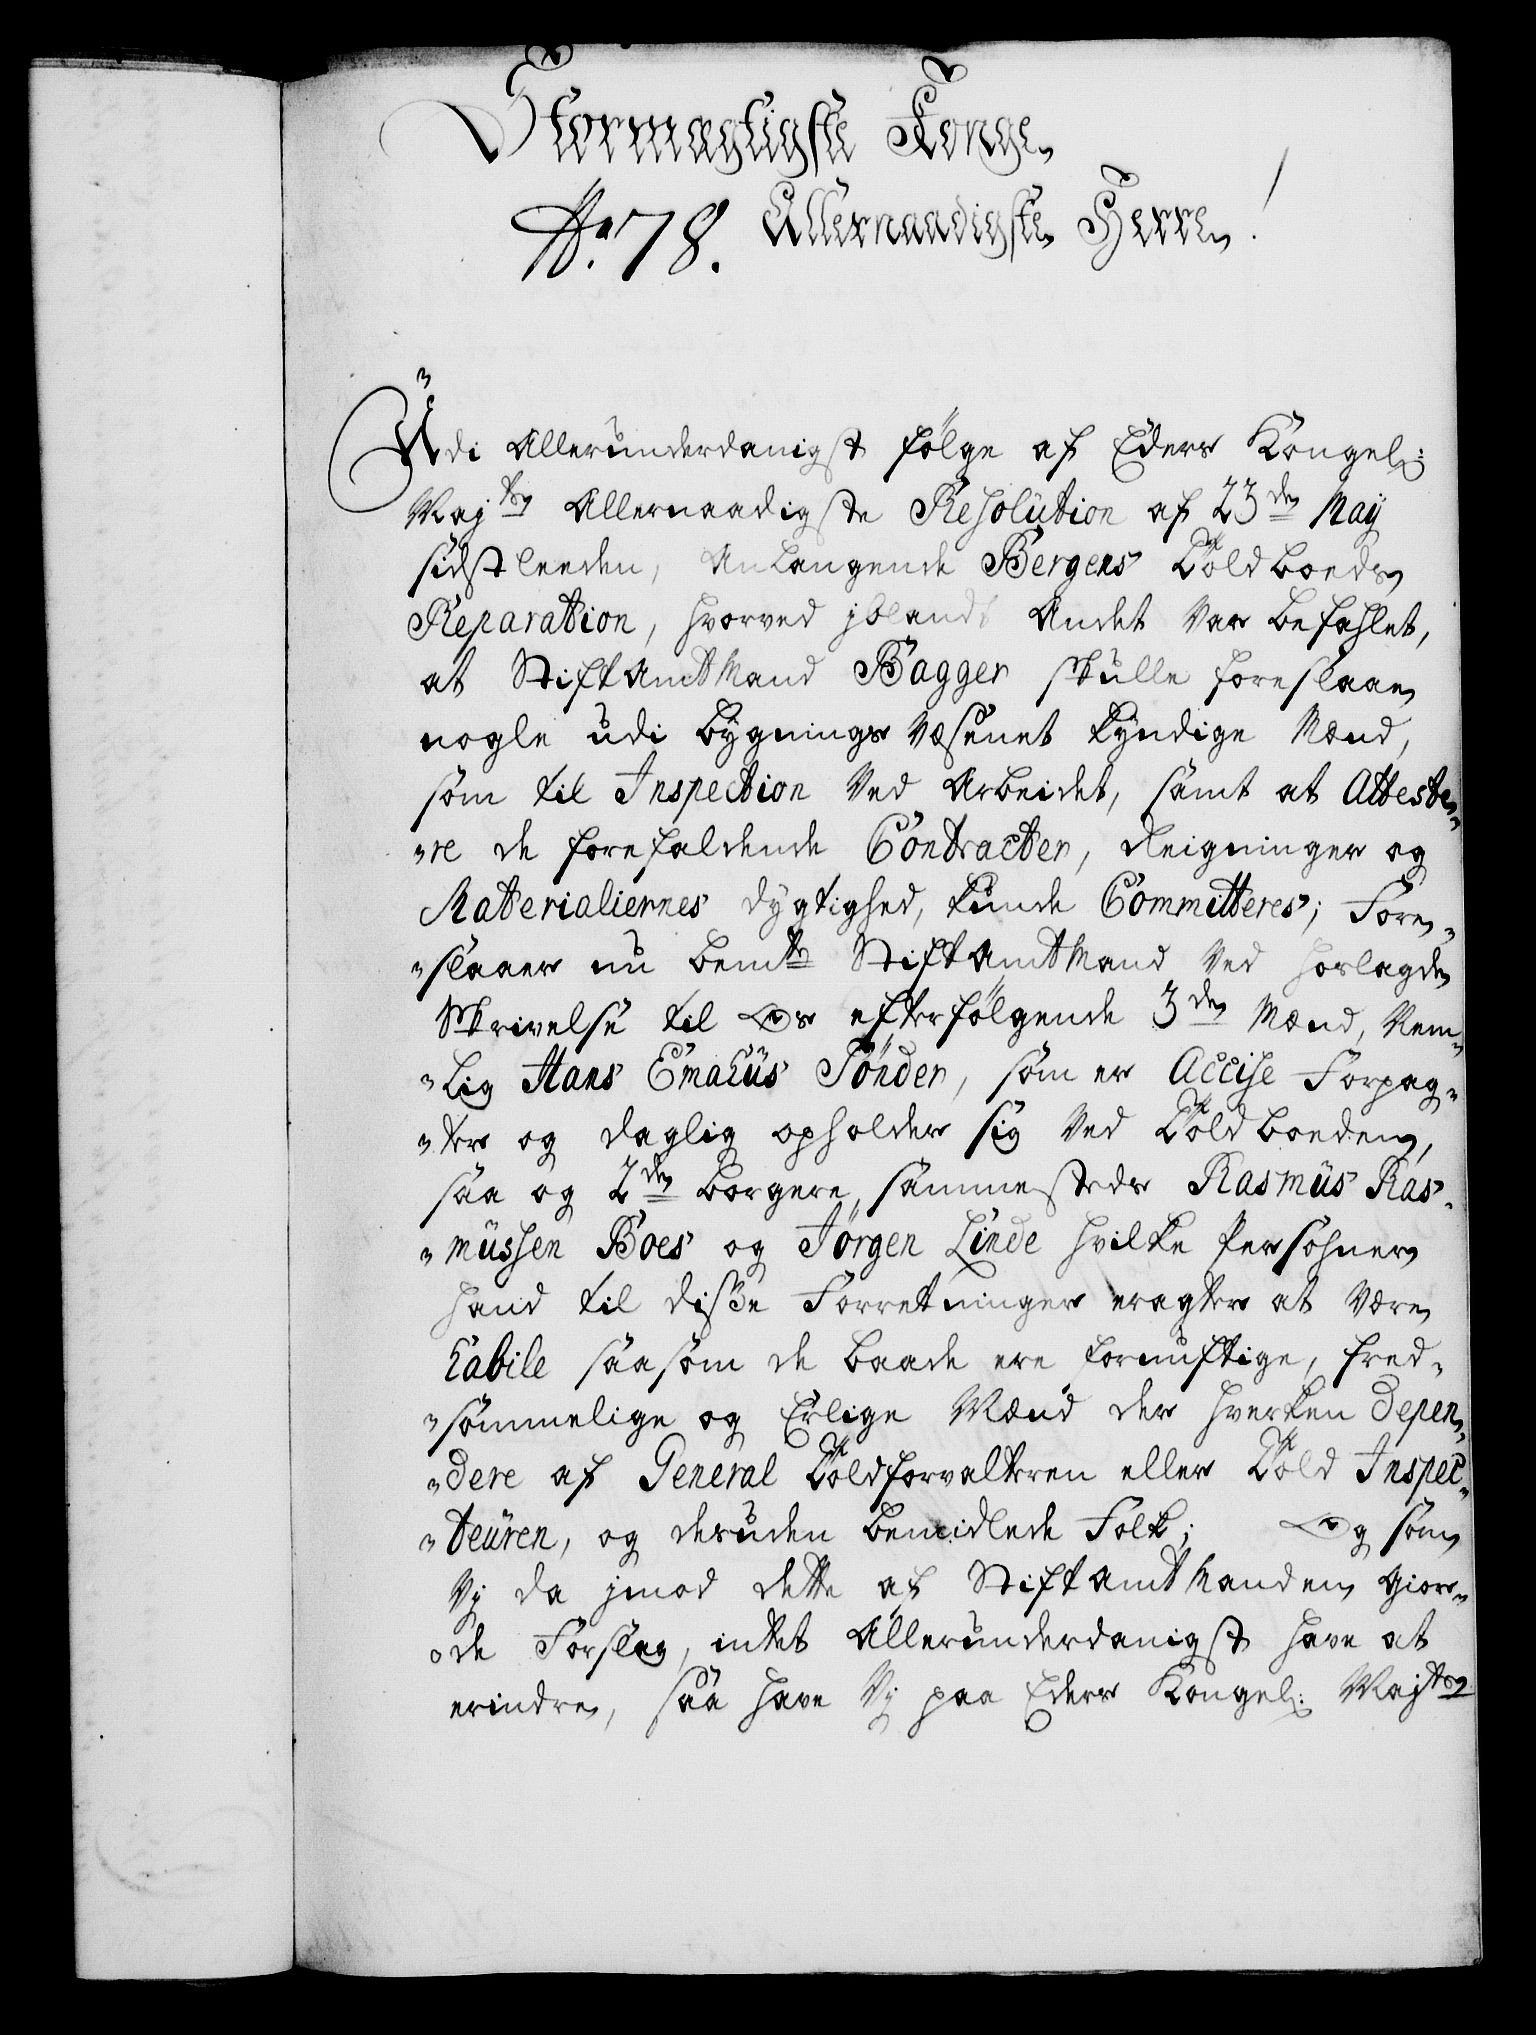 Stormægtigste Konge,
No. 78. Allernaadigste Herre!
Udi Allerunderdanigst følge af Eders Kongel:
Majts Allernaadigste Resolution af 23de May
sidstleeden, Anlangende Bergens Tolds boeds
Reparation, hvorved jblandt Andet Var befahlet,
at StiftAmtMand Bagger skulle foreslaae
nogle udi bygnings Væsenet kyndige Mænd,
som til Inspection Ved Arbeidet, samt at Atteste-
-re de forefaldende Contracter, Reigninger og
Materialiernes dygtighed, kunde Committeres; Fore-
-slaaer nu bemte StiftAmtMand Ved hoslagde
Skrivelse til Os efterfølgende 3de Mænd, Nem-
-lig Hans Emahus Tønder, som er Accise Forpag-
-ter og daglig opholder sig Ved Toldboeden,
saa og 2de borgere, sammesteds Rasmus Ras-
-mussen Boes og Jørgen Linde hvilke Persohner
hand til disse Forretninger eragter at være
habile saasom de baade ere fornuftige, fred-
-sommelige og Erlige Mænd der hverken depen-
-dere af General Toldforvalteren eller Told Inspec-
-teuren, og desuden bemidlede Folk; Og som
Vj da jmod dette af StiftAmtManden gior-
-de Forslag, intet Allerunderdanigst have at
erindre, saa have Vj paa Eders Kongel: Majts